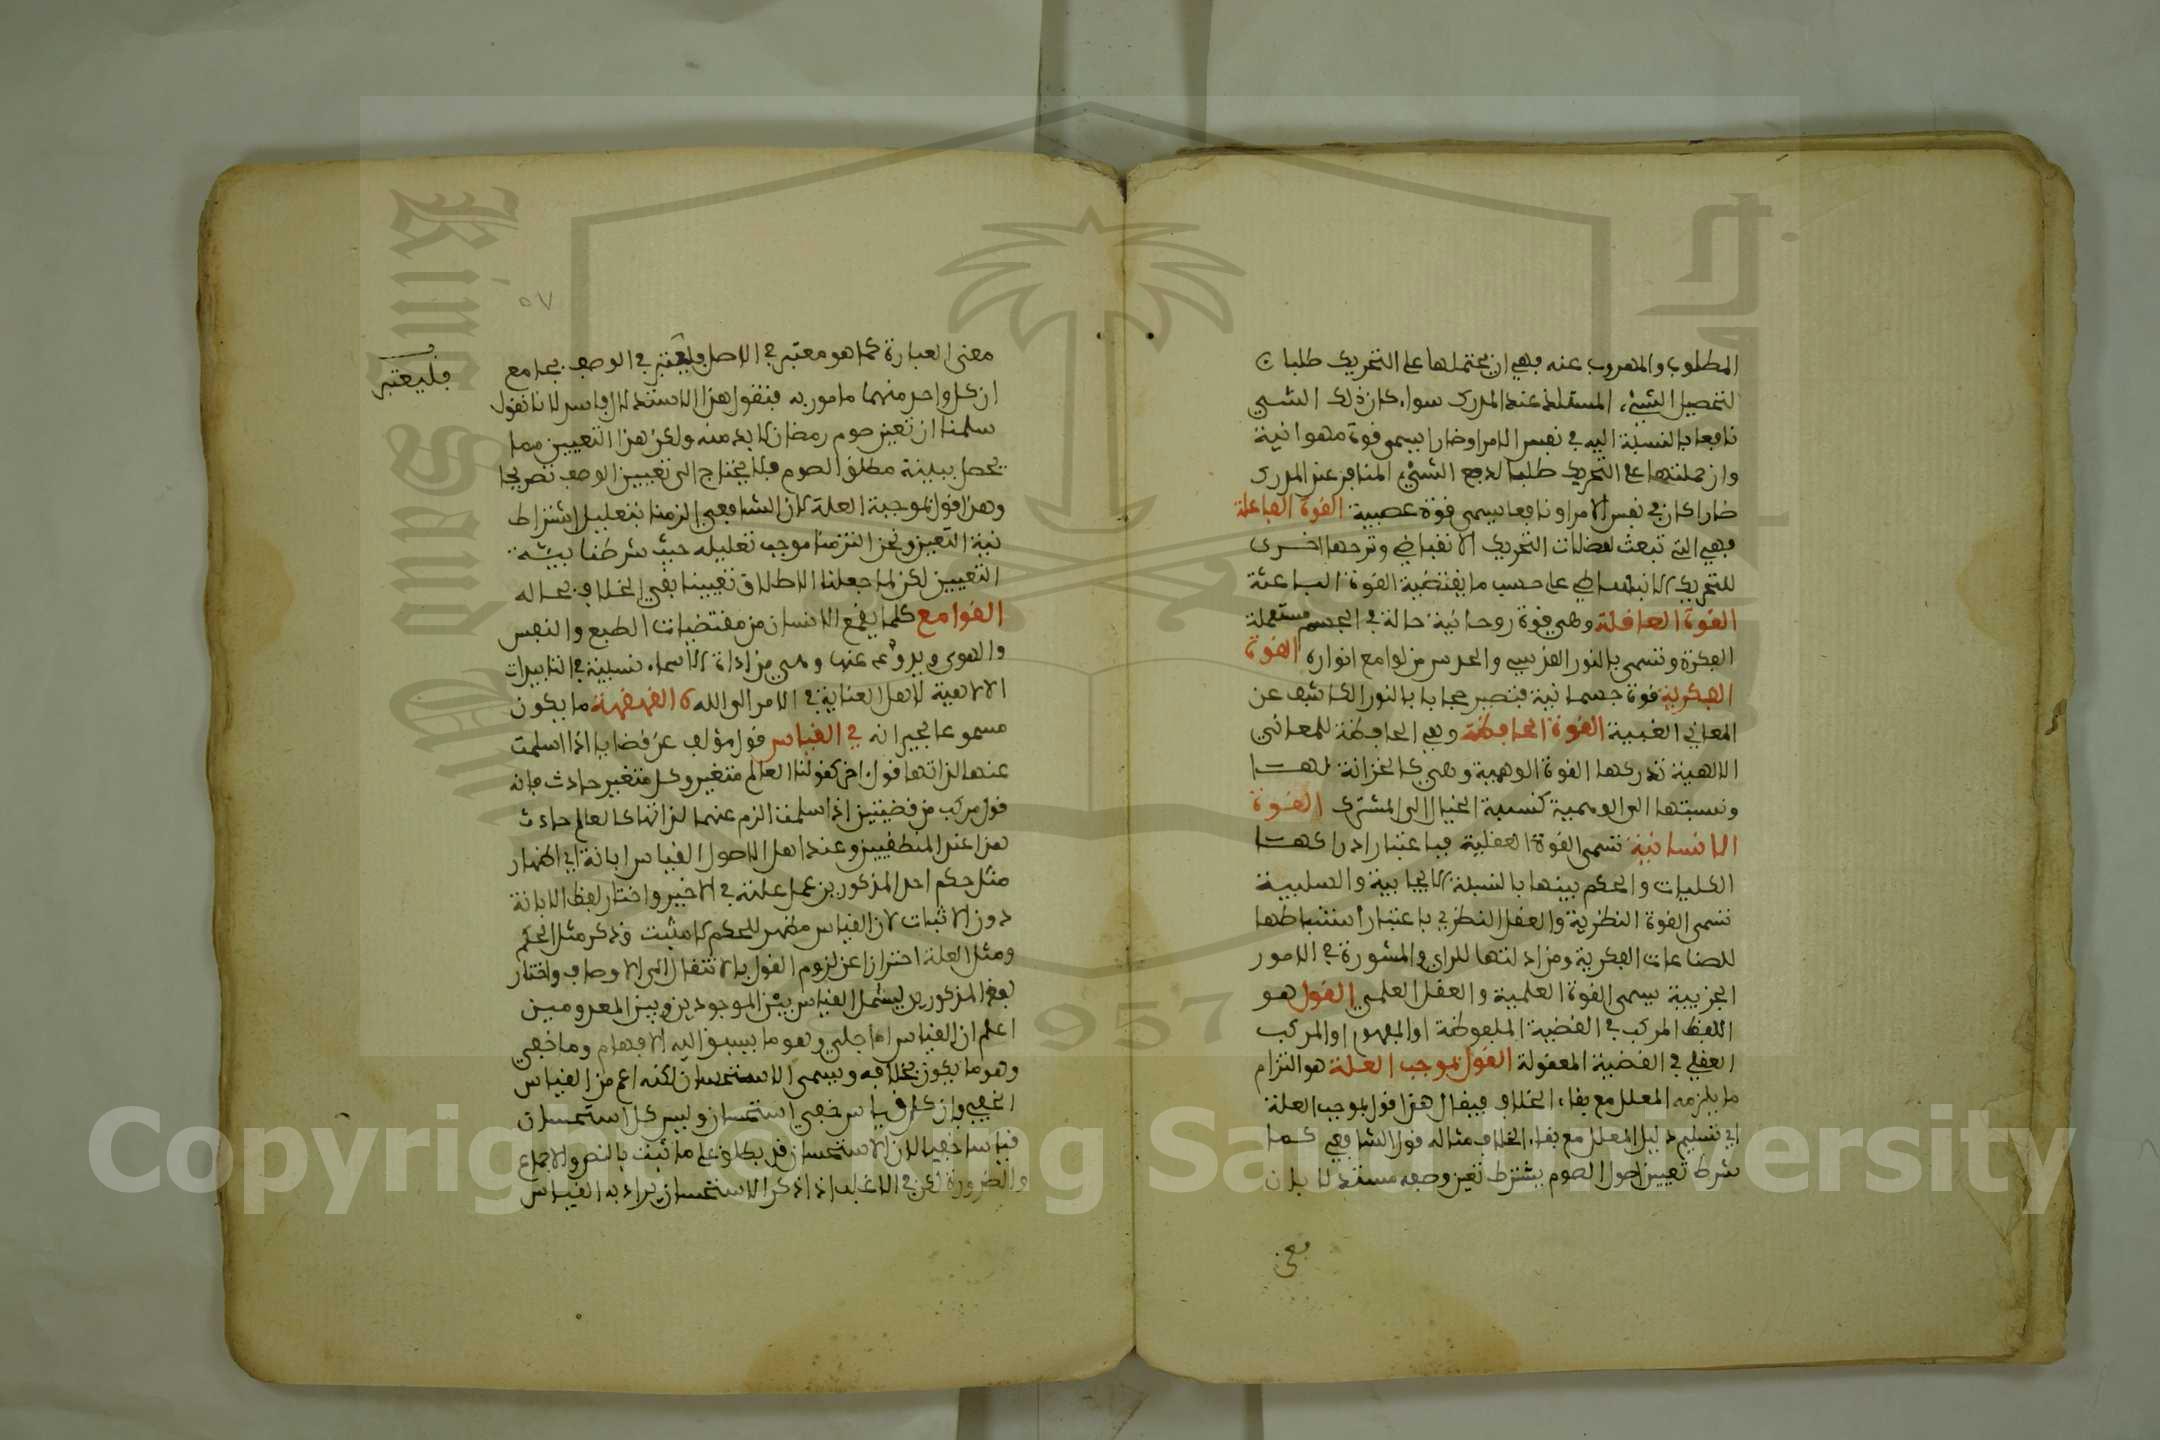 المطلوب والمهروب عنه فهي ان حملتها على التحريك طلبا
لتحصيل الشيء المستلذ عند المدرك سواء كان ذلك الشيء
نافعا بالنسبة اليه في نفس الامر او ضارا يسمى قوة شهوانية
وان حملتها على التحريك طلبا لدفع الشيء المنافر عند المدرك
ضارا كان في نفس الامر او نافعا يسمى قوة غضبية القوة الفاعلة
فهي التي تبعث لعضلات التحريك الانقباضي وترخها اخرى
للتحريك الانبساطي على حسب ما يقتضية القوة الباعثة
القوة العاقلة وهي قوة روحانية حالة في الجسم مستعملة
الفكرة وتسمى بالنور القدسي والحدس من لوامع انواره القوة
الفكرية قوة جسمانية فتصير حجابا بالنور الكاشف عن
المعاني الغيبية القوة الحافظة وهي الحافظة للمعاني
الالهية تدركها القوة الوهمية وهي كالخزانة لها
ونسبتها الى الوهمية كنسبة الخيال الى المشترك القوة
الانسانية تسمى القوة العقلية فباعتبار ادراكها
الكليات والحكم بينها بالنسبة الايجابية والسلبية
تسمى القوة النظرية والعقل النظري باعتبار استنباطها
للصناعات الفكرية ومزادلتها للراي والمشورة في الامور
الجزيية يسمى القوة العلمية والعقل العلمي القول هو
اللفظ المركب في القضية الملفوظة او المفهوم او المركب
العقلي في القضية المعقولة القول بموجب العلة هو التزام
ما يلزمه المعلل مع بقاء الخلاف فيقال هذا قول بموجب العلة
اي تسليم دليل المعلل مع بقاء الخلاف مثاله قول الشافعي كما
شرط تعيين اصل الصوم يشترط تعين وصفه مستدلا بان
معنى
٥٧
معنى العبارة كما هو معتبر في الاصل فليعتبر في الوصف بجامع
فليعتبر
ان كل واحد منهما مامور به فنقول هذا الاستدلال فاسد لانا نقول
سلمنا ان تعين صوم رمضان لا بد منه ولكن هذا التعيين مما
يحصل بنية مطلق الصوم فلا يحتاج الى تعيين الوصف تصريحا
وهذا قول بموجبة العلة لان الشافعي الزمنا بتعليل اشتراط
نية التعين ونحن التزمنا موجب تعليله حيث شرطنا نية
التعيين لكن لما جعلنا الاطلاق تعيينا بقي الخلاف بحاله
القوامع كلما يقمع الانسان من مقتضيات الطبع والنفس
والهوى ويردعه عنها وهي من ادادة الاسماء نسبية في التايدات
الالاهية لاهل العناية في الامر الى الله القهقهة ما يكون
مسموعا لجيرانه في القياس قول مؤلف عن قضايا اذا سلمت
عنها لذاتها قول اخر كقولنا العالم متغير وكل متغير حادث فانه
قول مركب من قضيتين اذا سلمت لزم عنهما لذاتهما العالم حادث
هذا عند المنطقيين وعند اهل الاصول القياس ابانة اي اظهار
مثل حكم احد المذكورين بمثل علته في الاخير واختار لفظ الابانة
دون الاثبات لان القياس مظهر للحكم لا مثبت وذكر مثل الحكم
ومثل العلة احترازا عن لزوم القول بالانتقال الى الاوصاف واختار
لفظ المذكورين ليشمل القياس بين الموجودين وبين المعدومين
اعلم ان القياس اما جلي وهو ما يسبق اليه الافهام وما خفي
وهو ما يكون بخلافه ويسمى الاستحسان لكنه اعم من القياس
الخفي وان كل قياس خفي استحسان وليس كل استحسان
قياسا خفيا لان الاستحسان قد يطلق على ما ثبت بالنص والاجماع
والضرورة لكن في الاغلب اذا ذكر الاستحسان يراد به القياس
King Saud University
1957
Copyright © King Saud University